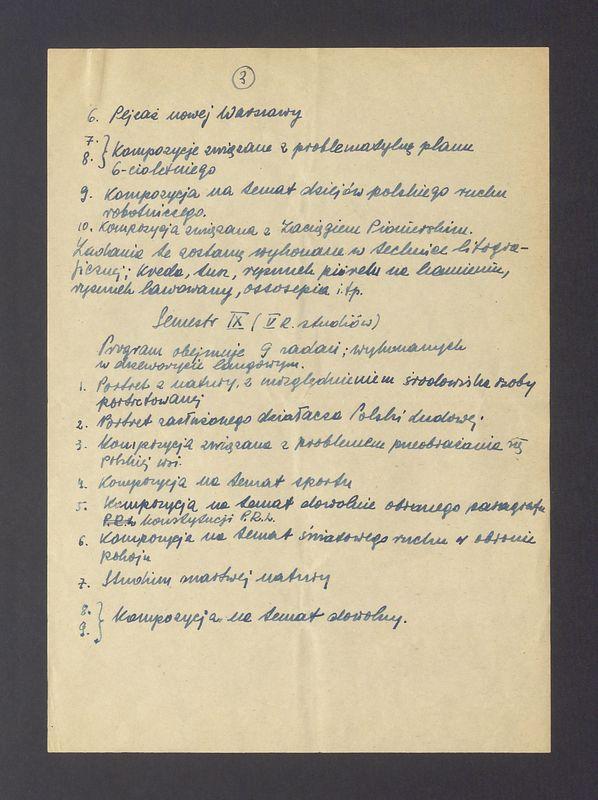 3
6. Pejzaż nowej Warszawy
7.
8. } Kompozycje związane z problematyką planu
6-cioletniego
9. Kompozycja na temat dziejów polskiego ruchu
robotniczego.
10. Kompozycja związana z Zaciągiem Pionierskim.
Zadania te zostaną wykonane w technice litogra-
ficznej; kreda, tusz, rysunek piórek na kamieniu,
rysunek lawowany, ossosepia i.t.p.
Semestr IX (V r. studiów)
Program obejmuje 9 zadań; wykonanych
w drzeworycie langowym.
1. Portret z natury, z uwzględnieniem środowiska osoby
portretowanej
2. Portret zasłużonego działacza Polski Ludowej.
3. Kompozycja związana z problemem przeobrażania się
polskiej wsi.
4. Kompozycja na temat sportu
5. Kompozycja na temat dowolnie obranego paragrafu
P.R.L. konstytucji P.R.L.
6. Kompozycja na temat światowego ruchu w obronie
pokoju
7. Studium martwej natury
8.
9. } Kompozycja na temat dowolny.